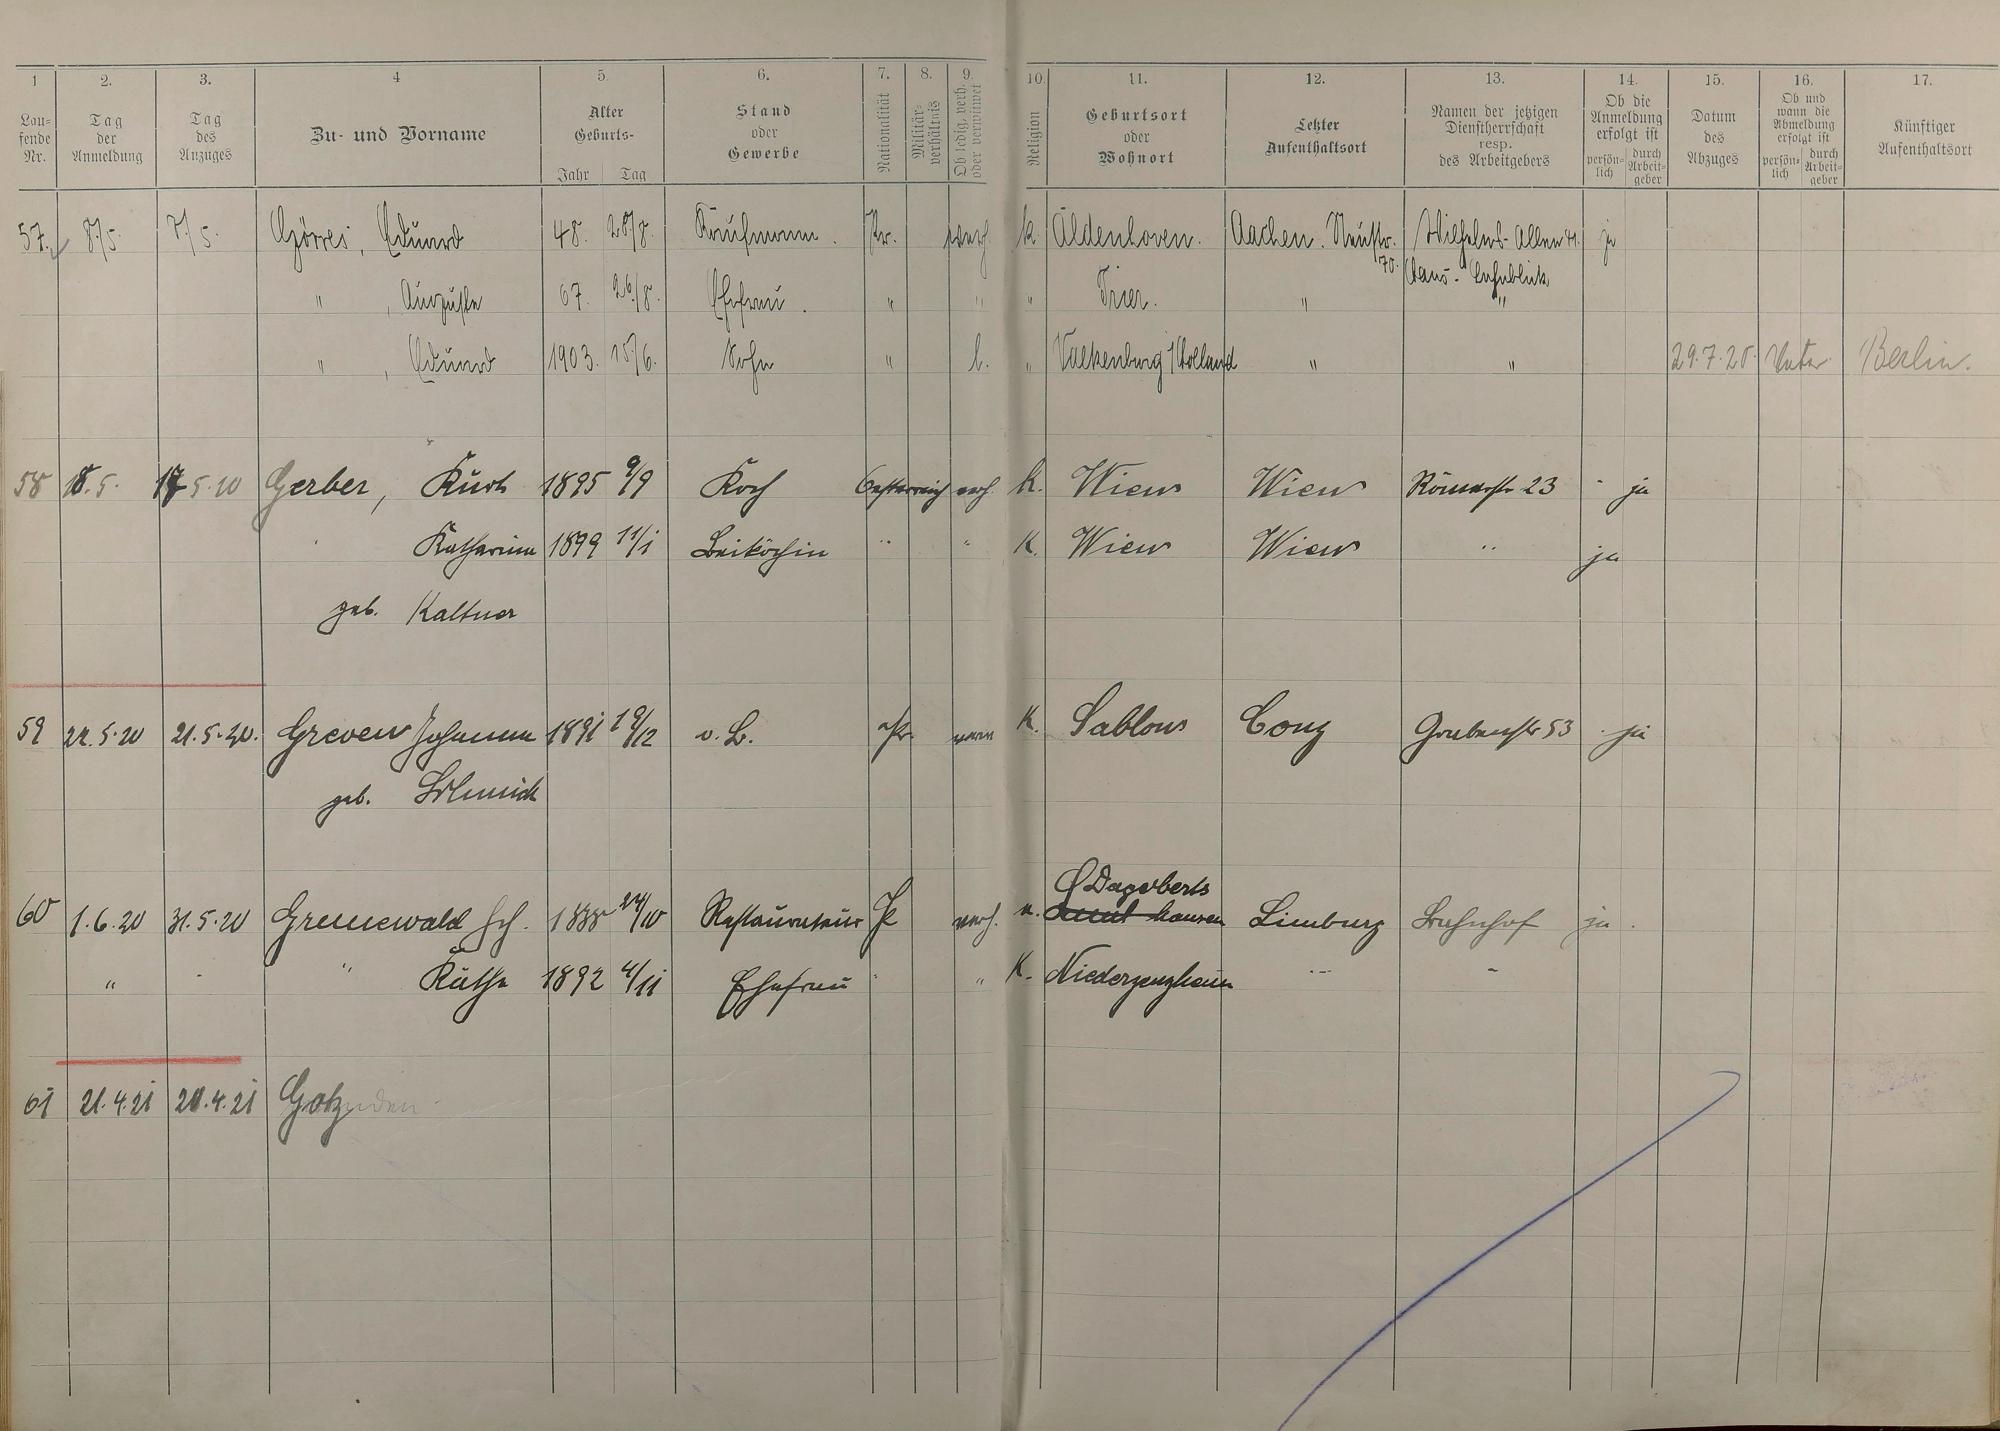 1 2. 3. 4 5. 6. 7. 8. 9. 10. 11. 12. 13. 14. 15. 16. 17.
Lau-fende Nr. Tag der Anmeldung Tag des Anzuges Zu- und Vorname Alter Geburts- Jahr Tag Stand oder Gewerbe Nationalität Militär-verhältnis Ob ledig, verh. oder verwitwet Religion Geburtsort oder Wohnort Letzter Aufenthaltsort Namen der jetzigen Dienstherrschaft resp. des Arbeitgebers Ob die Anmeldung erfolgt ist persön-lich durch Arbeit-geber Datum des Abzuges Ob und wann die Abmeldung erfolgt ist persön-lich durch Arbeit-geber Künftiger Aufenthaltsort
57. 8./5. 7./5. Görres, Eduard 48. 28/8. Kaufmann. Pr. verh. k. Aldenhoven. Aachen. Neustr. 70. Wilhelms-Allee 41. ja
Haus-
" , Auguste 67. 26./8. Ehefrau. " " " Trier. " "
" , Eduard 1903. 15./6. Sohn " l. " Valkenburg/Holland " " 29.7.20. Vater Berlin.
58 18.5. 17.5.20 Gerber, Kurt 1895 9/9 Koch Oesterreich verh. K. Wien Wien Römerstr 23 " ja
Katharina 1899 11/1 Beiköchin " " K. Wien Wien " ja
geb. Kaltner
59 22.5.20 21.5.20. Greven Johanna 1891 19/12 o.B. Pr. K. Sablons Conz Grabenstr 53 ja
geb. Schmick
60 1.6.20 31.5.20 Grunewald Restaurateur Pr verh. Dagoberts
hausen Limburg Bahnhof ja.
" " " Käthe 1892 4/11 Ehefrau " " K. " "
61 21.4.21 20.4.21 Götz